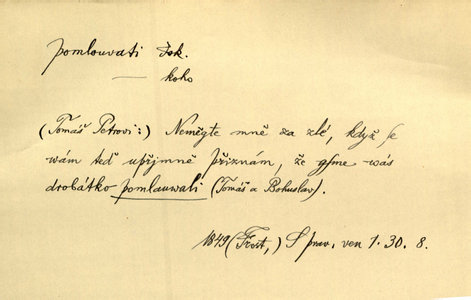 pomlouvati dok.
— koho
(Tomáš Petrovi:) Nemějte mně za zlé, když se
wám teď upřjmně přiznám, že gsme wás
drobátko pomlauwali (Tomáš a Bohuslav).
1849 (Frost,) S prav. ven 1. 30. 8.